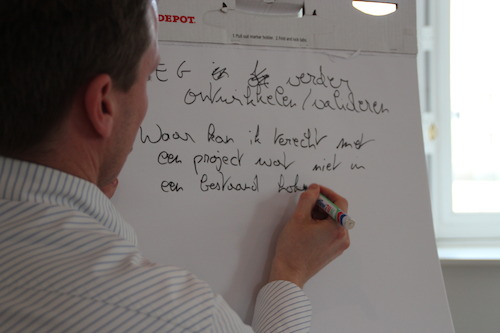 DEPOT.
EG verder
ontwikkelen/valideren
Waar kan ik terecht met
een project wat niet in
een bestaand